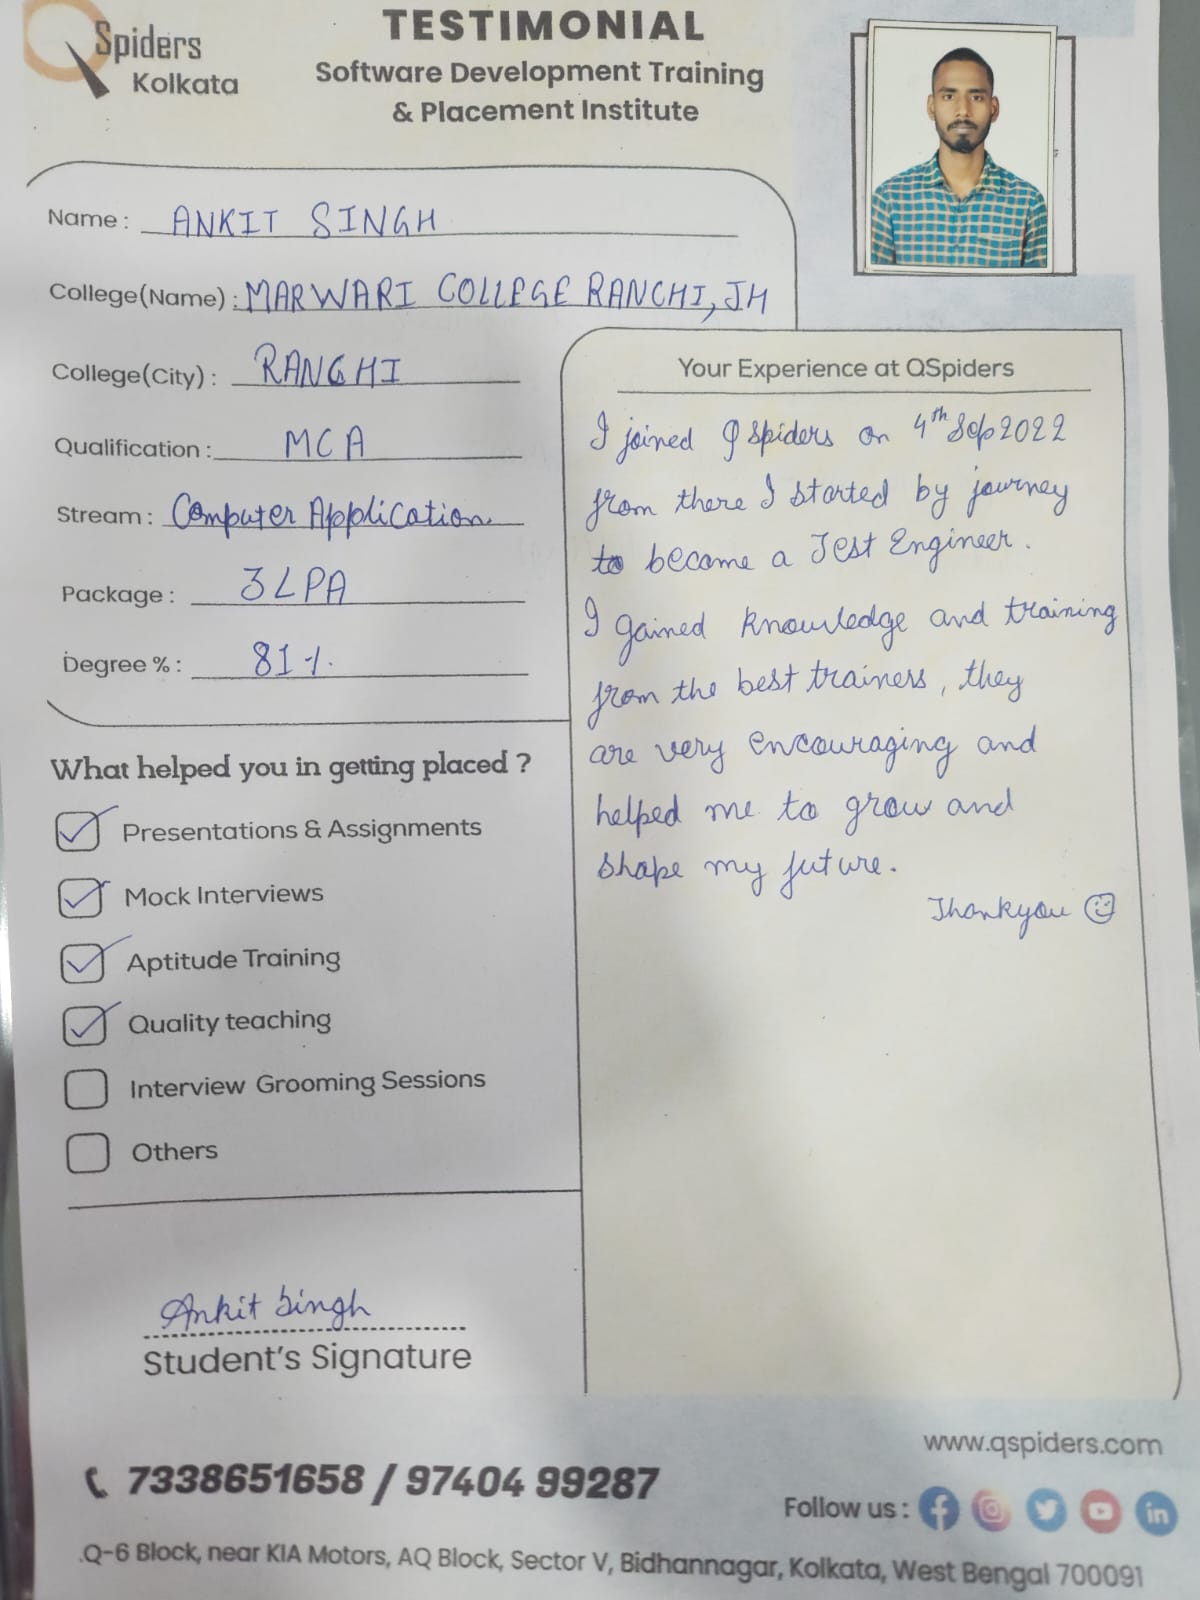 QSpiders
Kolkata
TESTIMONIAL
Software Development Training
& Placement Institute
Name : ANKIT SINGH
College(Name) : MARWARI COLLEGE RANCHI, JH
College(City) : RANCHI
Qualification : MCA
Stream : Computer Application.
Package : 3 LPA
Degree % : 81 %.
What helped you in getting placed ?
Presentations & Assignments
Mock Interviews
Aptitude Training
Quality teaching
Interview Grooming Sessions
Others
Ankit Singh
Student's Signature
Your Experience at QSpiders
I joined Q spiders on 4th Sep 2022
from there I started by journey
to become a Test Engineer.
I gained knowledge and training
from the best trainers, they
are very encouraging and
helped me to grow and
shape my future.
Thankyou
7338651658 / 97404 99287
www.qspiders.com
Follow us :
Q-6 Block, near KIA Motors, AQ Block, Sector V, Bidhannagar, Kolkata, West Bengal 700091